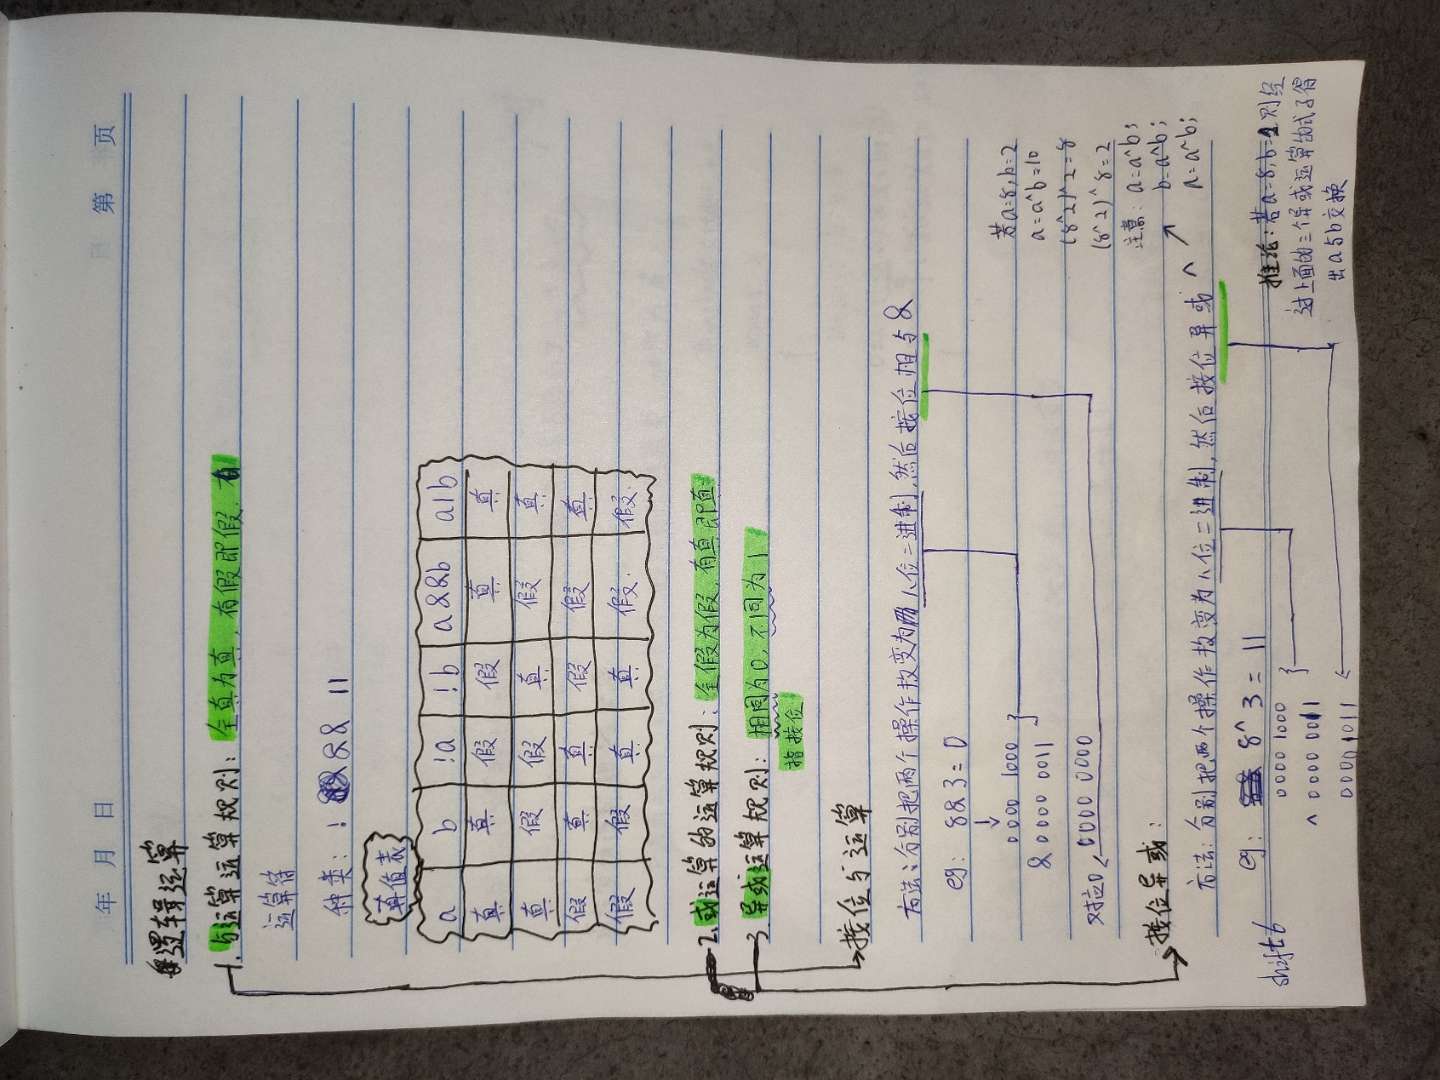 年 月 日
第 页
逻辑运算
1.与运算运算规则：全真为真，有假即假.
运算符
种类：! && ||
真值表
a b !a !b a&&b a|b
真 真 假 假 真 真
真 假 假 真 假 真
假 真 真 假 假 真
假 假 真 真 假. 假.
2.或运算的运算规则：全假为假，有真即真
3.异或运算规则：相同为0，不同为1
指按位
按位与运算
方法：分别把两个操作数变为两八位二进制，然后按位相与&
eg: 8&3=0
0000 1000
& 0000 0011
对应0 0000 0000
若a=8,b=2
a=a^b=10
(8^2)^2=8
(8^2)^8=2
注意: a=a^b;
b=a^b;
a=a^b;
按位异或：
方法：分别把两个操作数变为八位二进制，然后按位异或 ^
eg: 8^3=11
shift6
0000 1000
^ 0000 0011
0000 1011
推论：若a=8,b=2则经
过上面的三个异或运算的式子得
出a与b交换